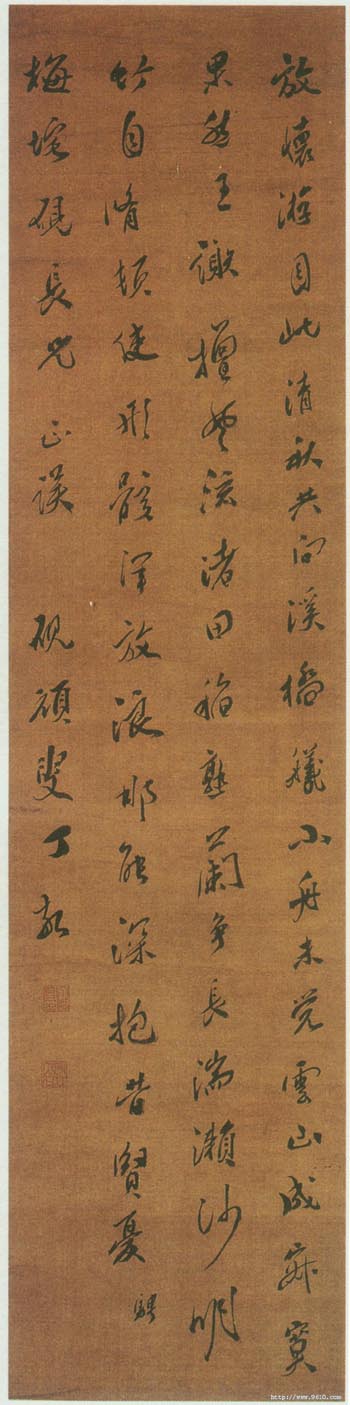 放懷游目此清秋共向溪橋艤小舟未覺雲山成寂寞
果然王謝擅風流渚田稻熟蘭爭長湍瀨沙明
竹自脩頓使形骸渾放浪那能深抱昔賢憂 騁
梅垞硯長兄正誤 硯頑叟丁敬
http://www.9610.com